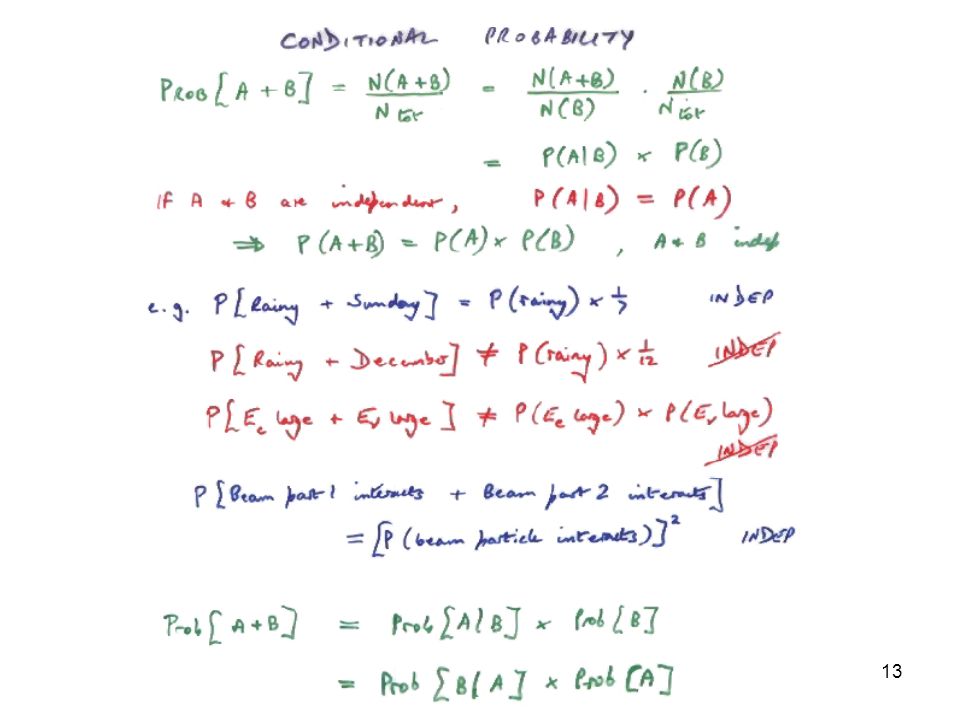 CONDITIONAL PROBABILITY
PROB[A + B] = N(A+B)/N tot = N(A+B)/N(B) · N(B)/N tot
= P(A|B) × P(B)
IF A + B are independent, P(A|B) = P(A)
⇒ P(A+B) = P(A) × P(B), A + B indep
e.g. P[Rainy + Sunday] = P(rainy) × 1/7 INDEP
P[Rainy + December] ≠ P(rainy) × 1/12 INDEP
P[Ee large + Eν large] ≠ P(Ee large) × P(Eν large)
INDEP
P[Beam part 1 interacts + Beam part 2 interacts]
= [P(beam particle interacts)]² INDEP
Prob[A+B] = Prob[A|B] × Prob[B]
= Prob[B|A] × Prob[A]
13